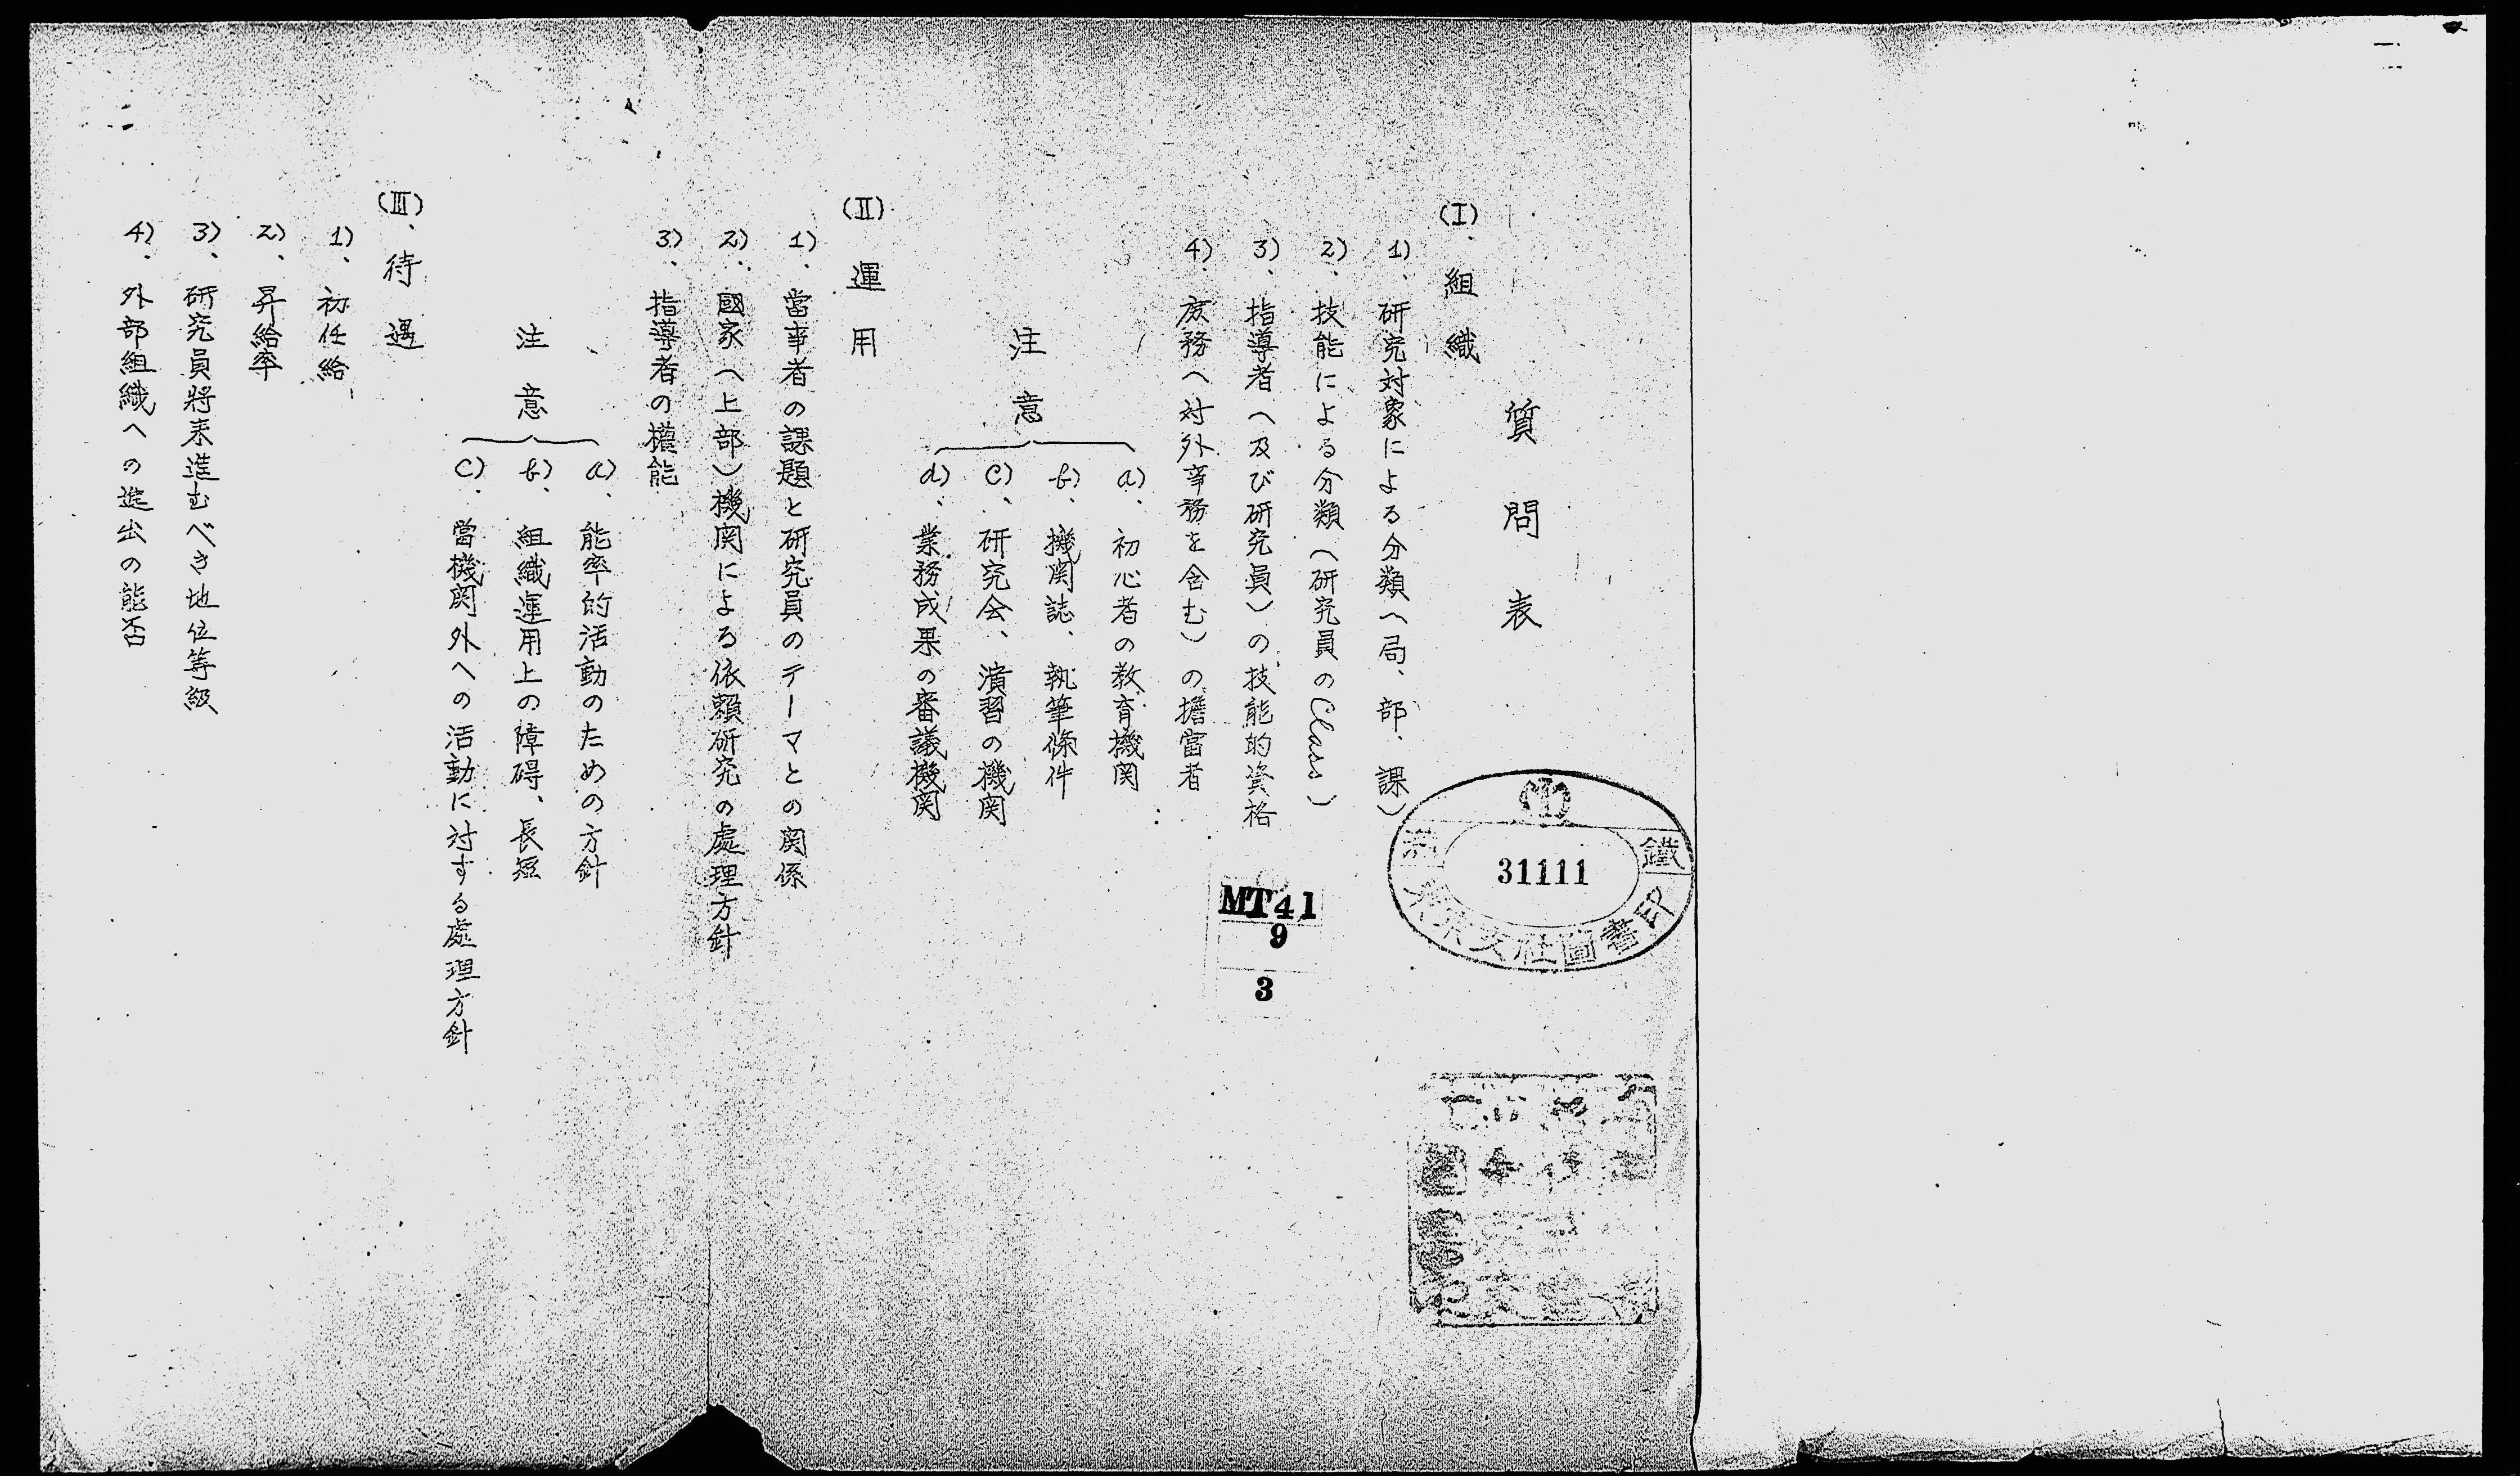 質問表
(Ⅰ)、組織
1)、研究対象による分類(局、部、課)
2)、技能による分類(研究員のClass)
3)、指導者(及び研究員)の技能的資格
4)、庶務(対外事務を含む)の擔當者
注意
a)、初心者の教育機関
b)、機関誌、執筆條件
c)、研究会、演習の機関
d)、業務成果の審議機関
(Ⅱ)運用
1)、當事者の課題と研究員のテーマとの関係
2)、國家(上部)機関による依頼研究の處理方針
3)、指導者の權能
注意
a)、能率的活動のための方針
b)、組織運用上の障碍、長短
c)、當機関外への活動に対する處理方針
(Ⅲ)、待遇
1)、初任給
2)、昇給率
3)、研究員將来進むべき地位等級
4)、外部組織への進出の能否
31111
MT41
9
3